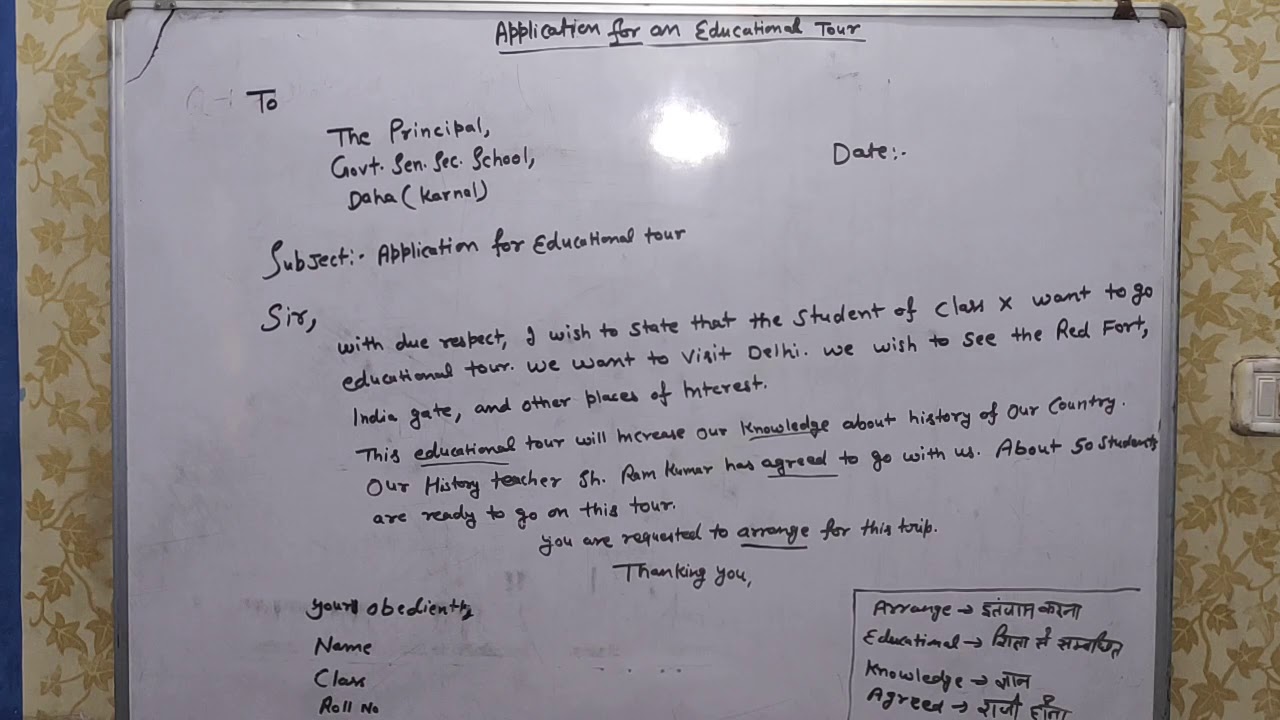 Application for an Educational Tour
To
The Principal,
Govt. Sen. Sec. School,
Daha (Karnal)
Date:-
Subject:- Application for Educational tour
Sir,
with due respect, I wish to state that the student of class X want to go
educational tour. We want to visit Delhi. We wish to see the Red Fort,
India gate, and other places of Interest.
This educational tour will increase our knowledge about history of our country.
Our History teacher Sh. Ram Kumar has agreed to go with us. About 50 students
are ready to go on this tour.
You are requested to arrange for this trip.
Thanking you,
yours obediently
Name
Class
Roll No
Arrange → इतंजाम करना
Educational → शिक्षा से सम्बंधित
Knowledge → ज्ञान
Agreed → राजी होना